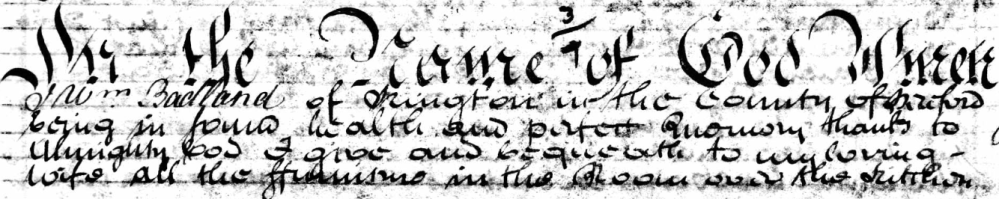 In the Name of God Amen
I Wm Badland of Kington in the County of Hereford
being in sound health and perfect Memory thanks to
Almighty God I give and bequeath to my loving
wife all the ffurniture in the Room over the Kitchen